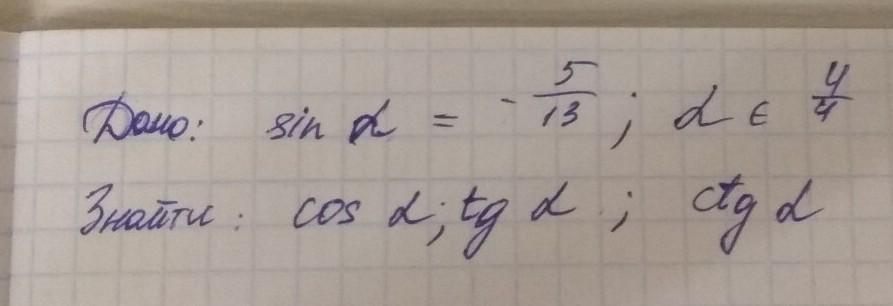 Дано: sin α = - 5/13 ; α ∈ 4/4
Знайти: cos α; tg α ; ctg α